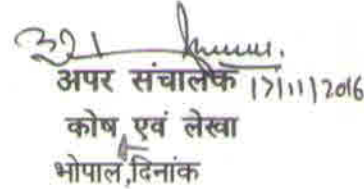 अपर संचालक 17/11/2016
कोष एवं लेखा
भोपाल,दिनांक